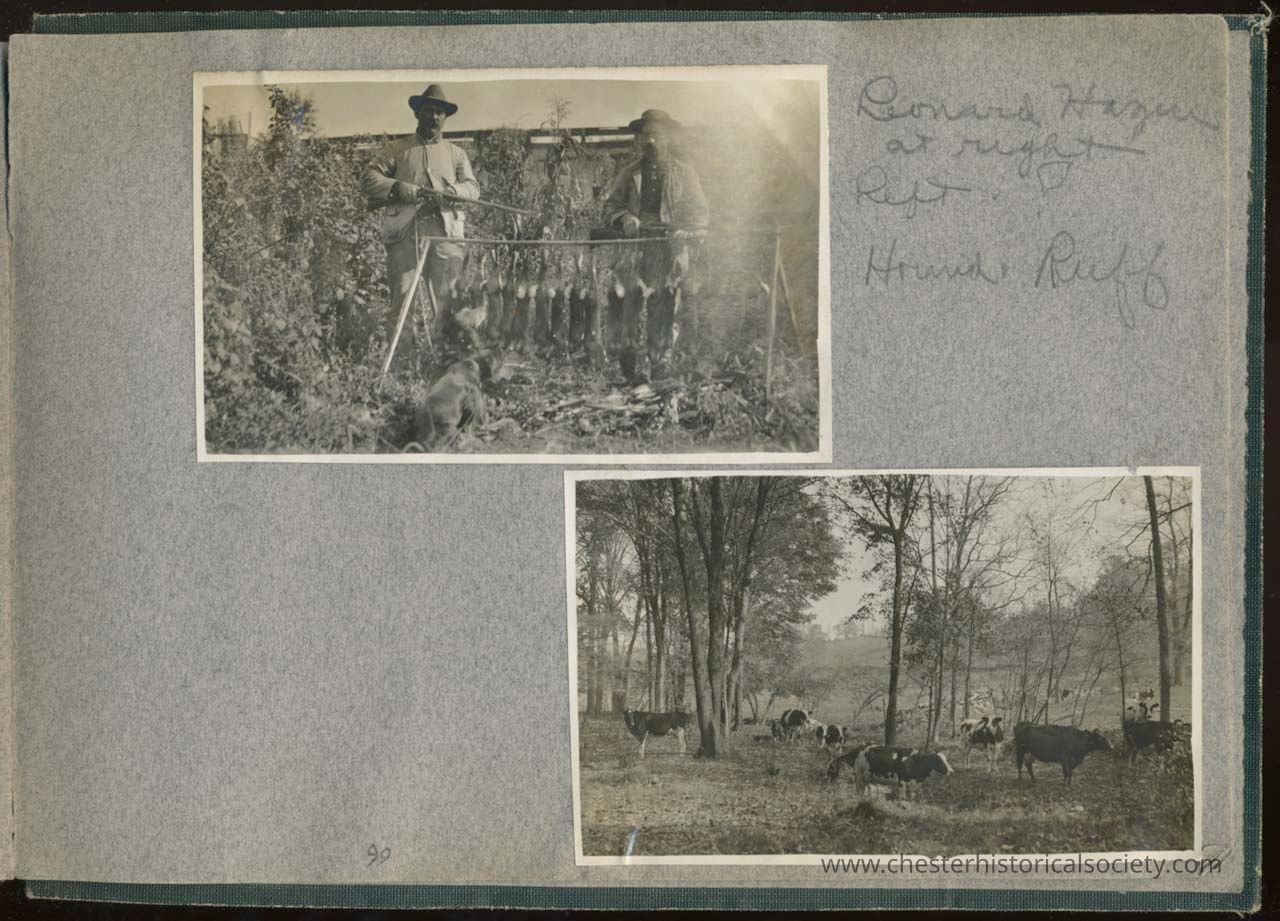 Leonard Hazen
at right
Left
Hound. Ruff
90
www.chesterhistoricalsociety.com